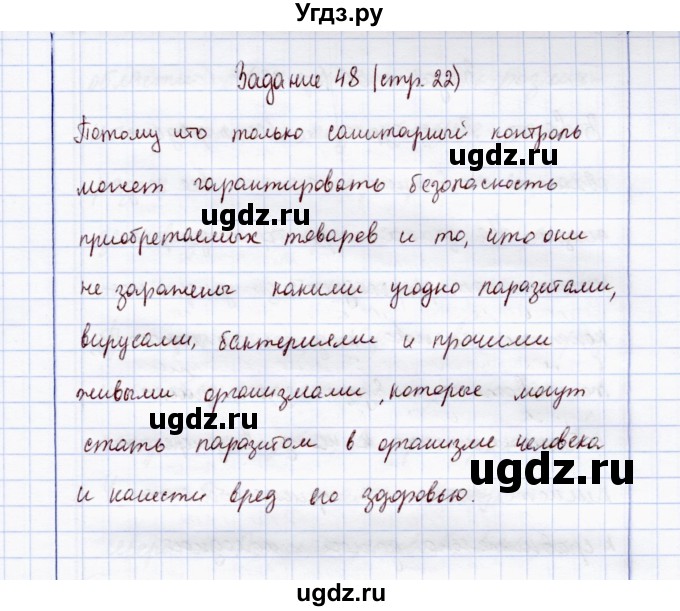 Угдз.ру
Задание 48 (стр. 22)
Потому что только санитарный контроль
ugdz.ru
может гарантировать безопасность
ugdz.ru
приобретаемых товаров и то, что они
не заражены какими угодно паразитами,
вирусами, бактериями и прочими
живыми организмами, которые могут
ugdz.ru
стать паразитом в организме человека
ugdz.ru
и нанести вред его здоровью.
ugdz.ru